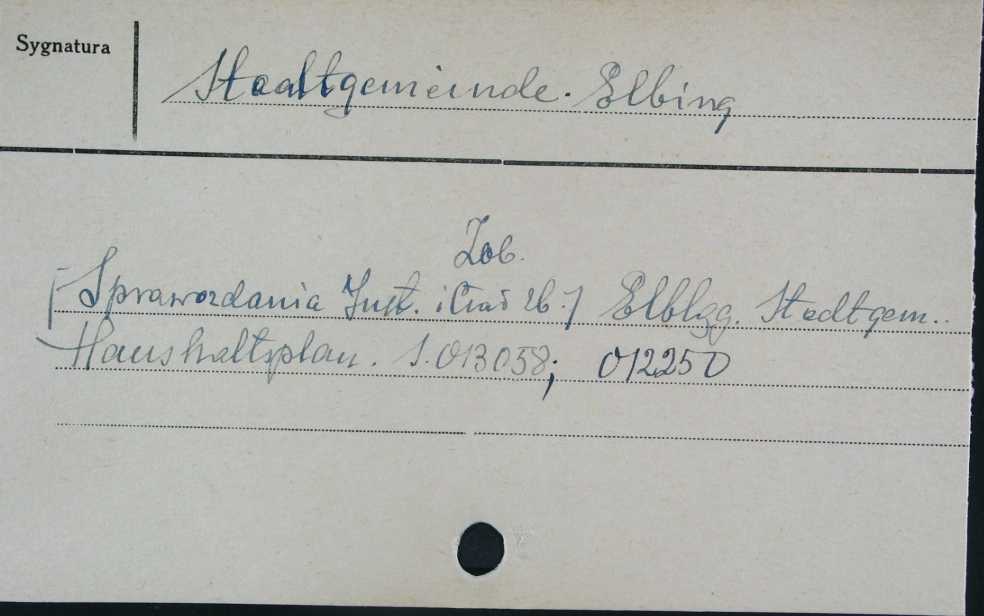 Sygnatura
Stadtgemeinde. Elbing
Zob.
[Sprawozdania Inst. i 
Elblag. Stadtgem.
Haushaltsplan. S. 013058; 012250